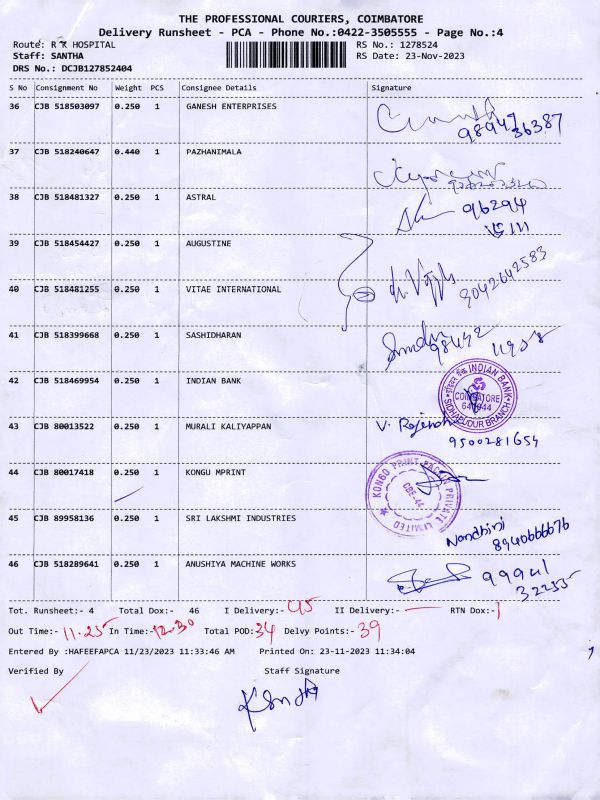 THE PROFESSIONAL COURIERS, COIMBATORE
Delivery Runsheet - PCA - Phone No.:0422-3505555 - Page No.:4
Route: R K HOSPITAL RS No.: 1278524
Staff: SANTHA RS Date: 23-Nov-2023
DRS No.: DCJB127852404
S No Consignment No Weight PCS Consignee Details Signature
36 CJB 518503097 0.250 1 GANESH ENTERPRISES
98947 36387
37 CJB 518240647 0.440 1 PAZHANIMALA
38 CJB 518481327 0.250 1 ASTRAL
96294
39 CJB 518454427 0.250 1 AUGUSTINE
40 CJB 518481255 0.250 1 VITAE INTERNATIONAL
41 CJB 518399668 0.250 1 SASHIDHARAN
42 CJB 518469954 0.250 1 INDIAN BANK
INDIAN BANK
COIMBATORE
SIDHAPUDUR BRANCH
43 CJB 80013522 0.250 1 MURALI KALIYAPPAN V. Rajendh
9500281654
44 CJB 80017418 0.250 1 KONGU MPRINT
PRIVATE LIMITED
CBE-44
45 CJB 89958136 0.250 1 SRI LAKSHMI INDUSTRIES
Nandhini
8940666676
46 CJB 518289641 0.250 1 ANUSHIYA MACHINE WORKS
99941
32255
Tot. Runsheet:- 4 Total Dox:- 46 I Delivery:- 45 II Delivery:- — RTN Dox:- 1
Out Time:- 11.25 In Time:- 12.30 Total POD: 34 Delvy Points:- 39
Entered By :HAFEEFAPCA 11/23/2023 11:33:46 AM Printed On: 23-11-2023 11:34:04
Verified By Staff Signature